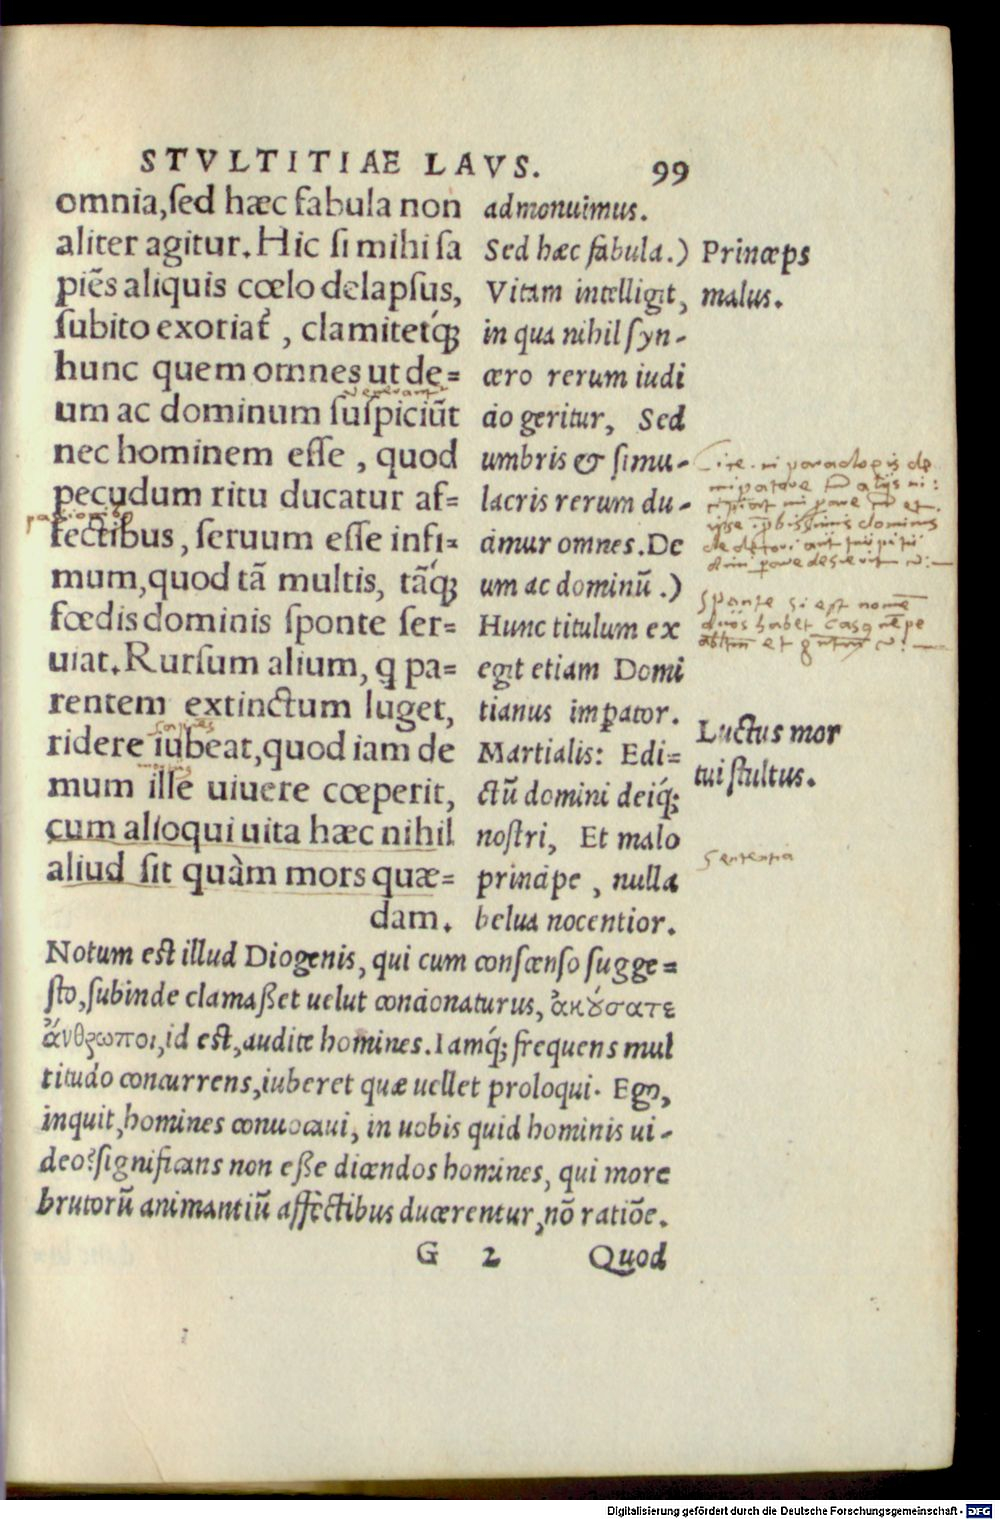 STVLTITIAE LAVS. 99
omnia,ſed hæc fabula non
aliter agitur. Hic ſi mihi ſa
piēs aliquis cœlo delapſus,
ſubito exoriat᷑, clamitetq́;
hunc quem omnes ut de=
um ac dominum ſuſpiciūt
nec hominem eſſe, quod
pecudum ritu ducatur af=
fectibus, ſeruum eſſe infi=
mum,quod tā multis, tāq́;
fœdis dominis ſponte ſer=
uiat. Rurſum alium, q pa=
rentem extinctum luget,
ridere iubeat,quod iam de
mum ille uiuere cœperit,
cum alioqui uita hæc nihil
aliud ſit quàm mors quæ=
dam.
admonuimus.
Sed hæc fabula.)
Vitam intelligit,
in qua nihil ſyn-
cero rerum iudi
cio geritur, Sed
umbris & ſimu-
lacris rerum du-
cimur omnes. De
um ac dominū.)
Hunc titulum ex
egit etiam Domi
tianus imꝑator.
Martialis: Edi=
ctū domini deiq́;
noſtri, Et malo
principe, nulla
belua nocentior.
Princeps
malus.
Luctus mor
tui ſtultus.
Sententia
Notum eſt illud Diogenis, qui cum conſcenſo ſugge=
ſto,ſubinde clamaſſet uelut concionaturus, ἀκȣ́σατε
ἄνθρωποι,id eſt,audite homines. Iamq́; frequens mul
titudo concurrens,iuberet quæ uellet proloqui. Ego,
inquit,homines conuocaui, in uobis quid hominis ui-
deo?ſignificans non eſſe dicendos homines, qui more
brutorū animantiū affectibus ducerentur, nō ratiōe.
G 2 Quod
Digitalisierung gefördert durch die Deutsche Forschungsgemeinschaft - DFG